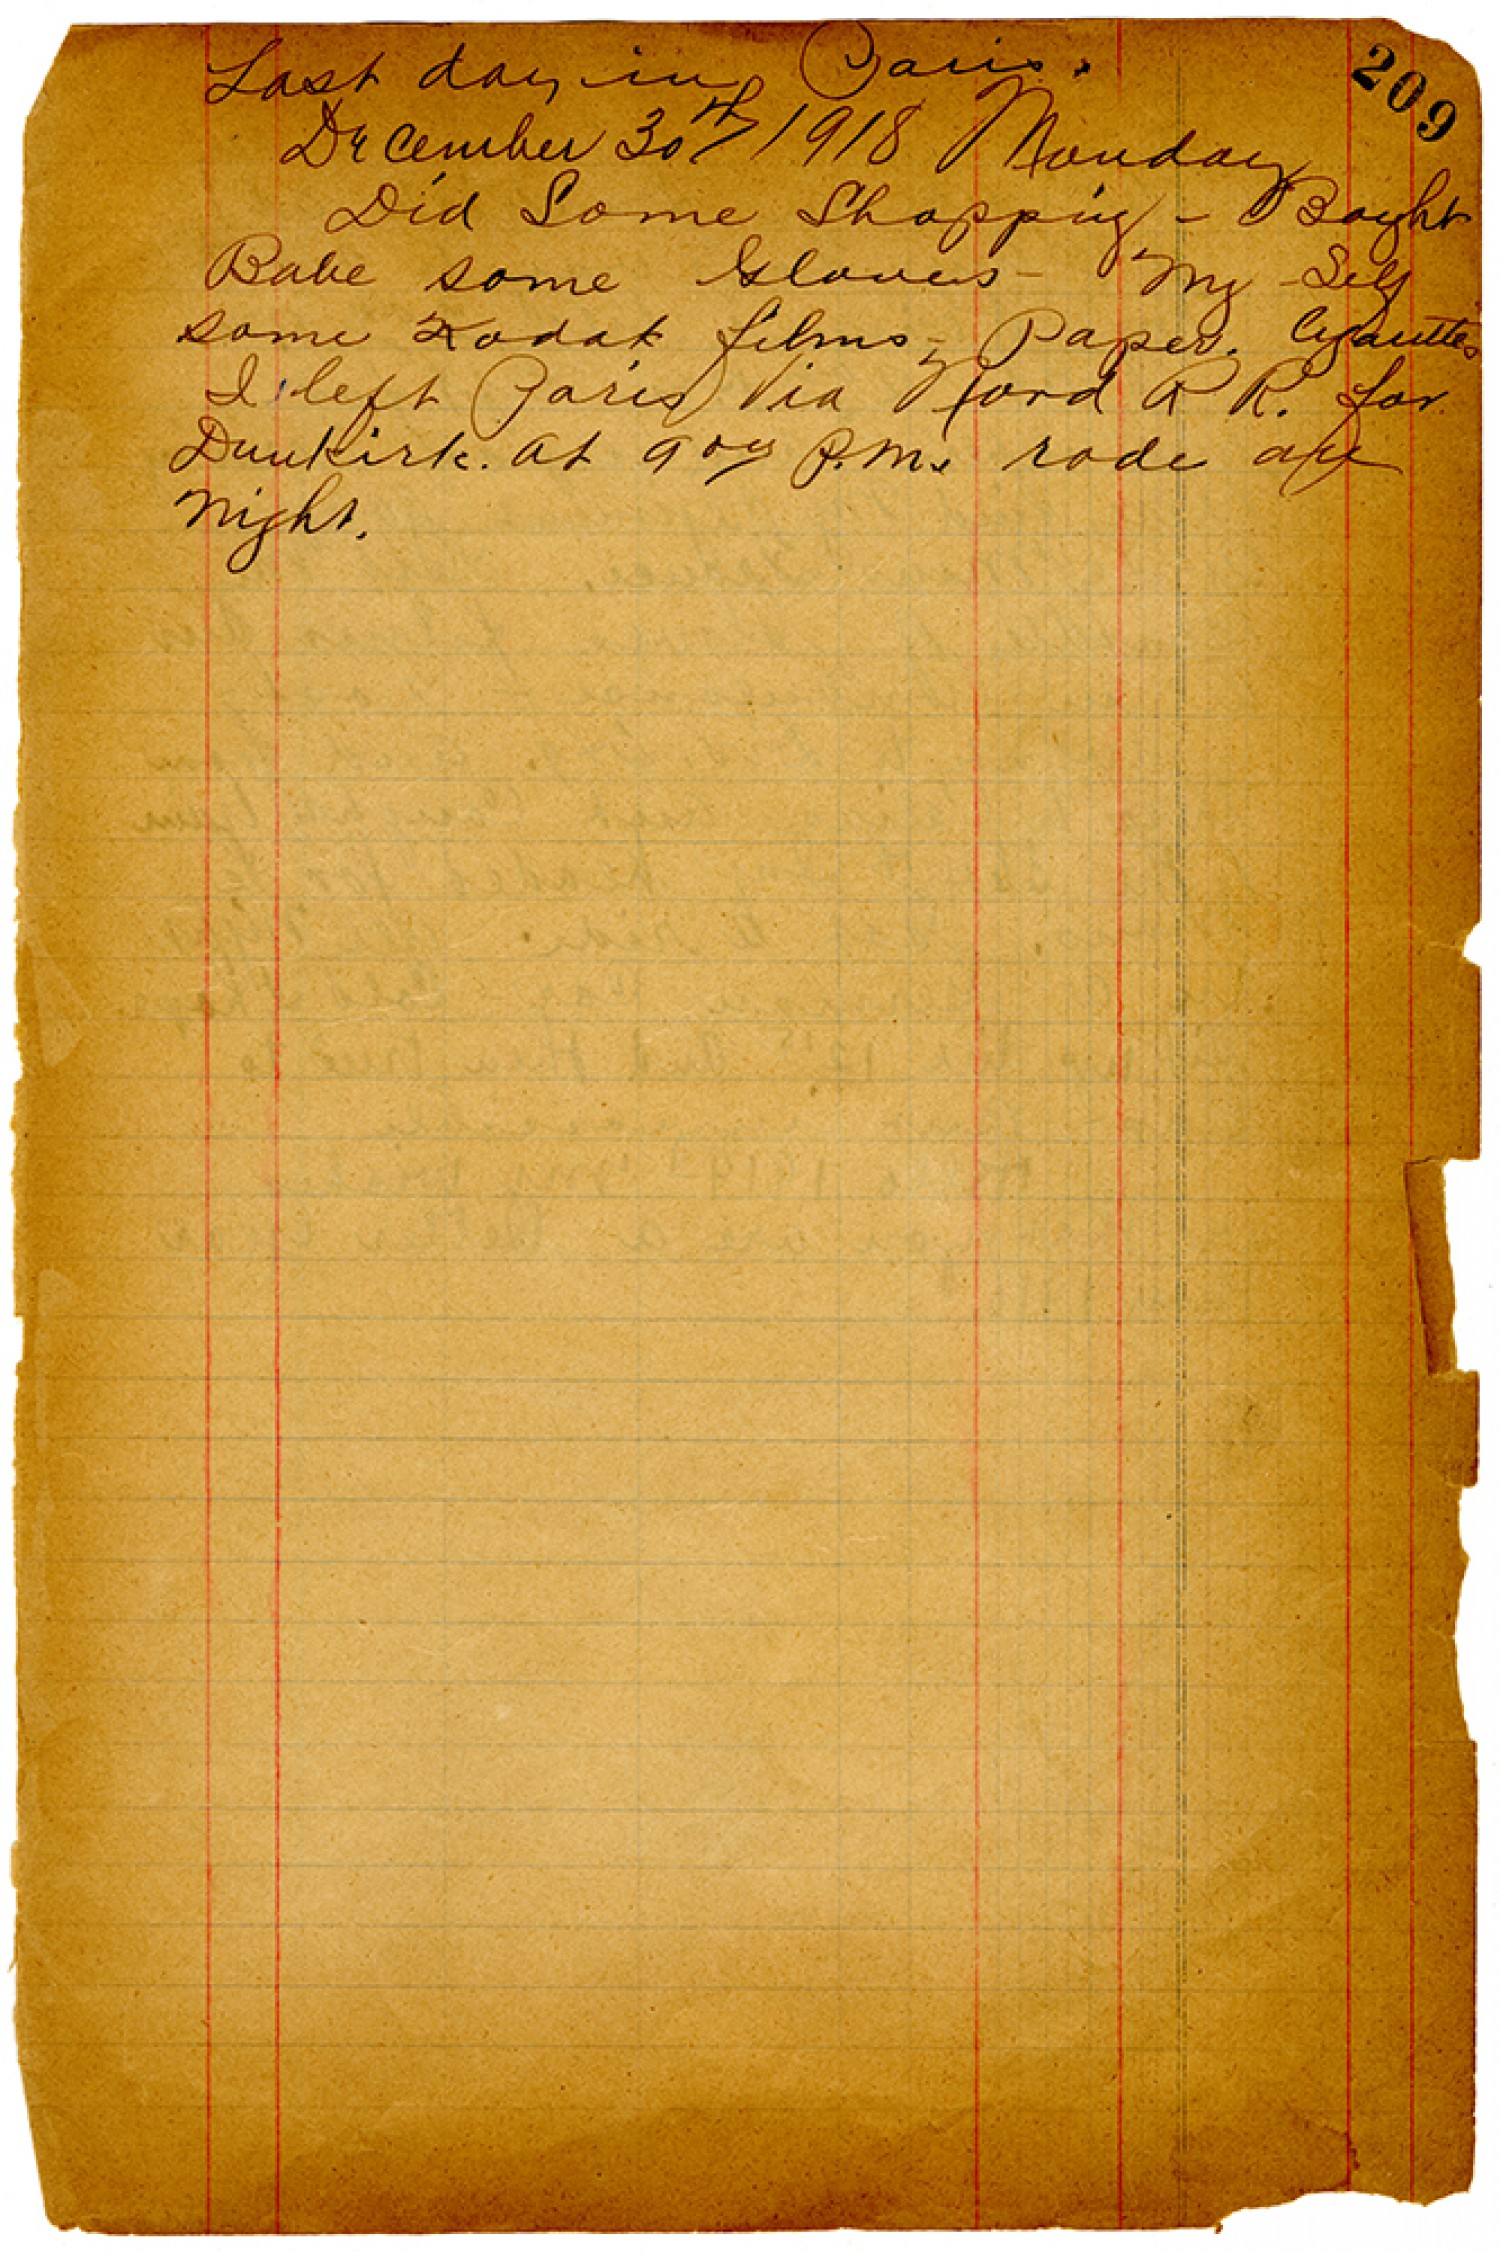 Last day in Paris.
209
December 30th 1918 Monday
Did Some Shopping - Bought
Babe some Gloves - My Self
some Kodak films - Paper. Cigarettes
I left Paris Via Nord R R. for
Dunkirk. at 9 P.M. rode all
night.